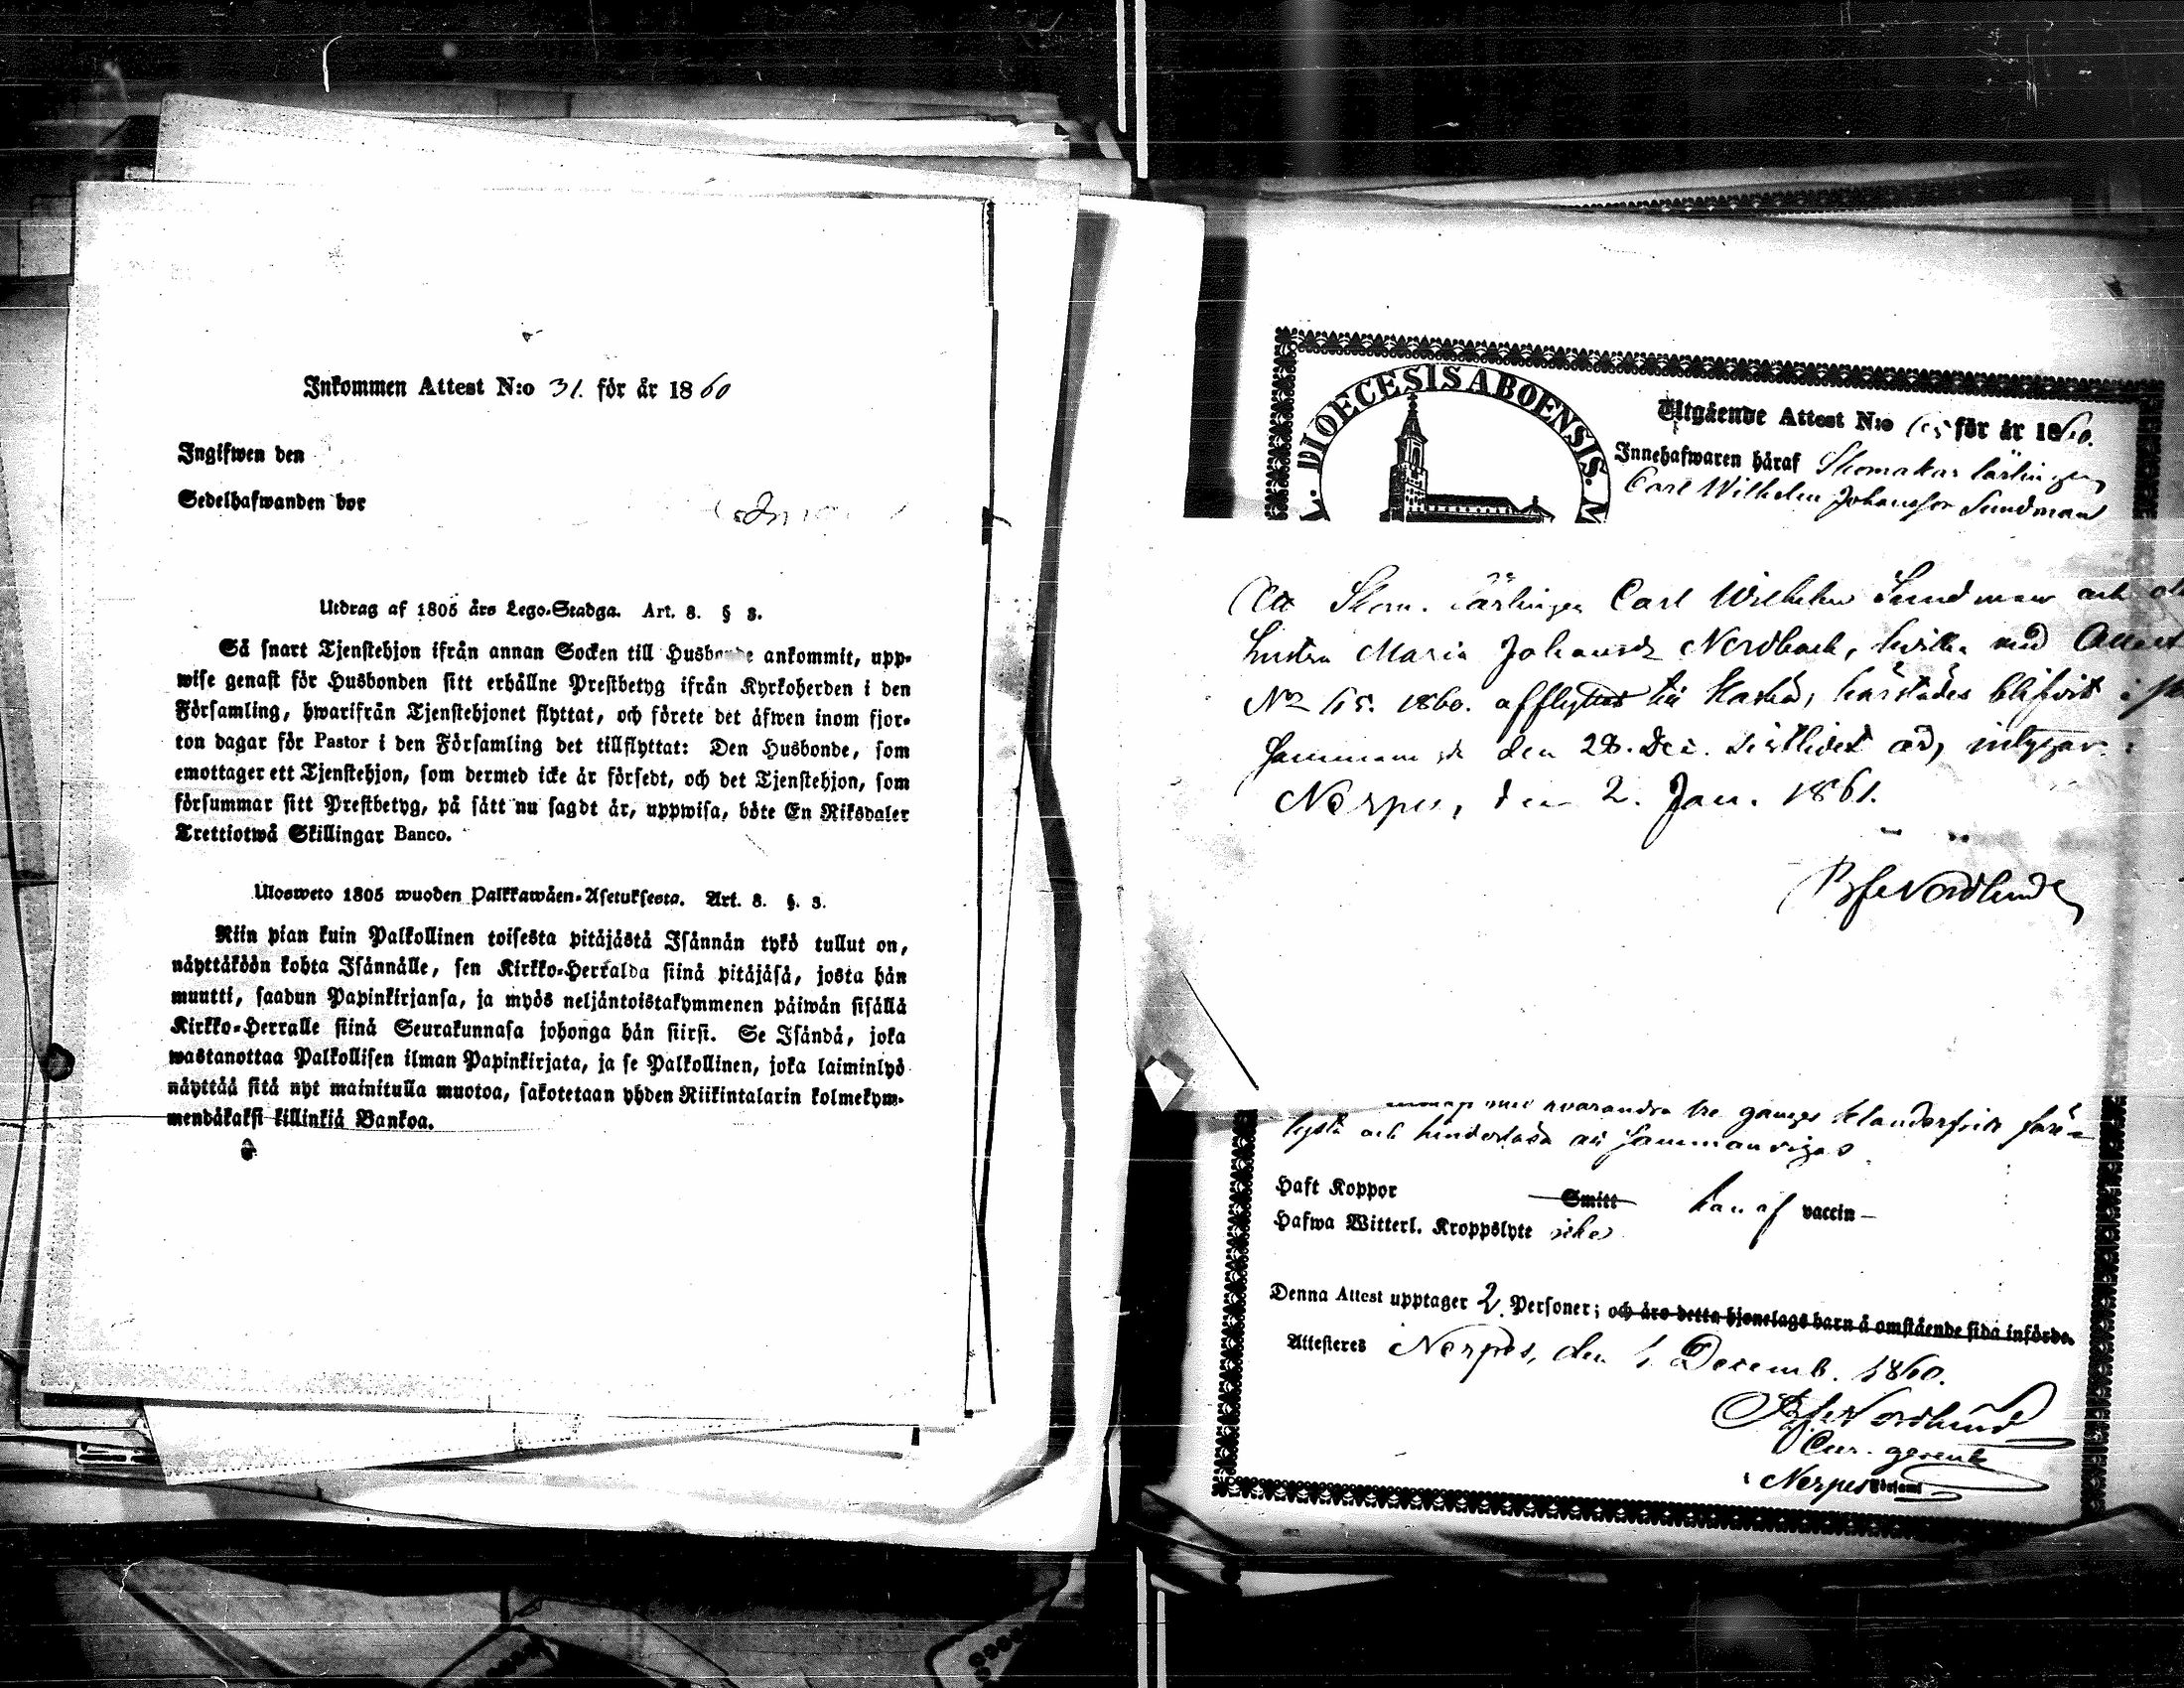 Inkommen Attest N:o 31. för år 1860
Ingifwen den
Sedelhafwanden bor
Utdrag af 1805 års Lego-Stadga. Art. 8. § 3.
Så snart Tjenstehjon ifrån annan Socken till Husbonde ankommit, upp-
wise genast för Husbonden sitt erhållne Prestbetyg ifrån Kyrkoherden i den
Församling, hwarifrån Tjenstehjonet flyttat, och förete det äfwen inom fjor-
ton dagar för Pastor i den Församling det tillflyttat: Den Husbonde, som
emottager ett Tjenstehjon, som dermed icke är försedt, och det Tjenstehjon, som
försummar sitt Prestbetyg, på sätt nu sagdt är, uppwisa, böte En Riksdaler
Trettiotwå Skillingar Banco.
Ulosweto 1805 wuoden Palkkawäen-Asetuksesta. Art. 8. §. 3.
Niin pian kuin Palkollinen toisesta pitäjästä Isännän tykö tullut on,
näyttäköön kohta Isännälle, sen Kirkko-Herralda siinä pitäjäsä, josta hän
muutti, saadun Papinkirjansa, ja myös neljäntoistakymmenen päiwän sisällä
Kirkko-Herralle siinä Seurakunnasa johonga hän siirsi. Se Isändä, joka
wastanottaa Palkollisen ilman Papinkirjata, ja se Palkollinen, joka laiminlyö
näyttää sitä nyt mainitulla muotoa, sakotetaan yhden Riikintalarin kolmekym-
mendäkaksi killinkiä Bankoa.
DIOECESIS ABOENSIS. M
Utgående Attest N:o 65 för år 1860.
Innehafwaren häraf Skomakar lärlingen
Carl Wilhelm Johansson Sundman
Att Skom. lärlingen Carl Wilhelm Sundman och
hustru Maria Johansdr Nordback, hvilka med Attest
No 65. 1860. afflyttat till Kaskö, härstädes blifvit
den 28. Dec. sistlidet år, intygar.
Nerpes, den 2. Jan. 1861.
Nordlund
med hvarandra tre gånger klanderfritt
lysta och hinderlösa att sammanvigas
Haft Koppor Smitt han af vaccin
Hafwa Witterl. Kroppslyte icke
Denna Attest upptager 2 Personer; och äro detta hjonelags barn å omstående sida införde.
Attesteres Nerpes, den 1 Decemb. 1860.
Nordlund
Nerpes Församl